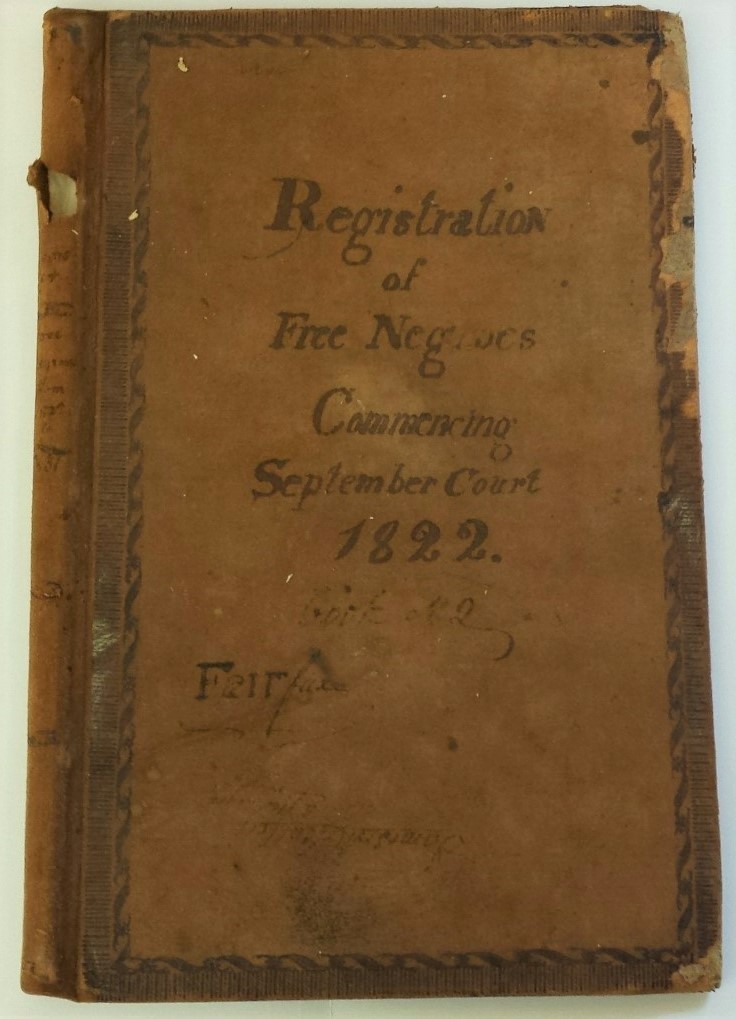 Registration
of
Free Negroes
Commencing
September Court
1822.
Book No 2
Fairfax